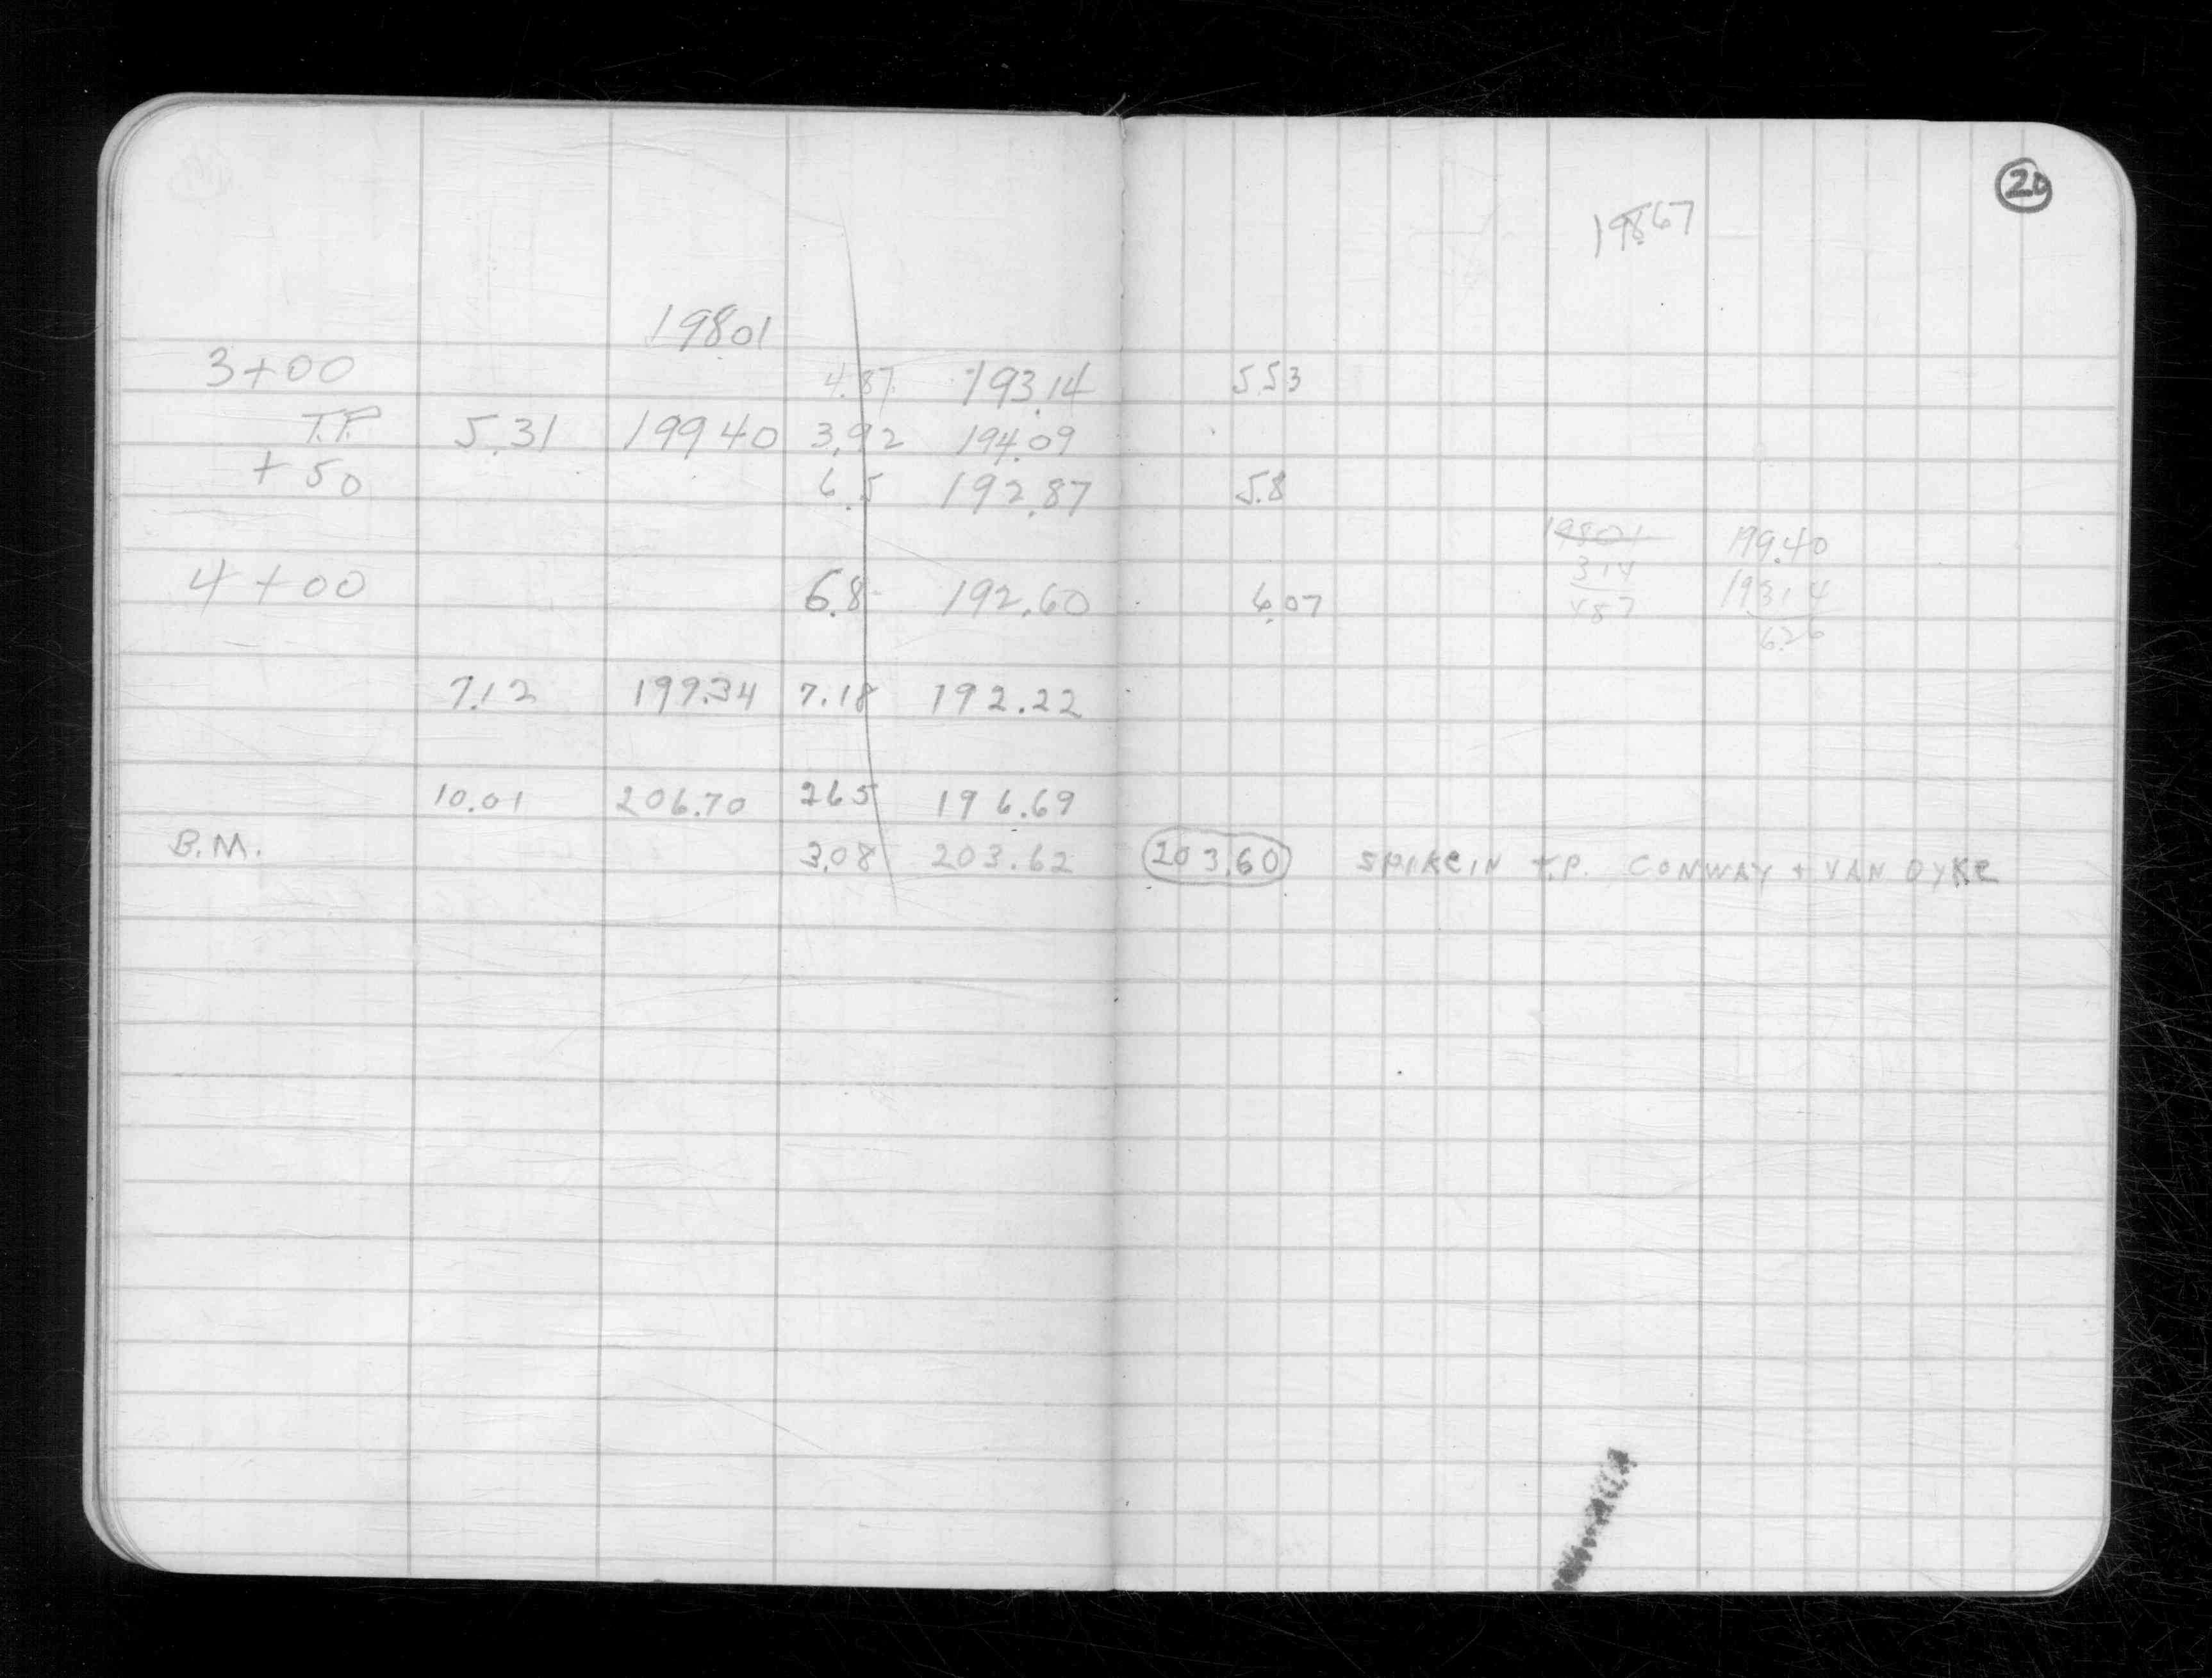 20
19867
19801
3+00 4.87 193.14 5.53
T.P. 5.31 199 40 3.92 194.09
+50 6.5 192.87 5.8
19801 199.40
314 19314
487 626
4+00 6.8 192.60 6.07
7.12 199.34 7.18 192.22
10.01 206.70 265 196.69
B.M. 3.08 203.62 203.60 SPIKE IN T.P. CONWAY + VAN DYKE